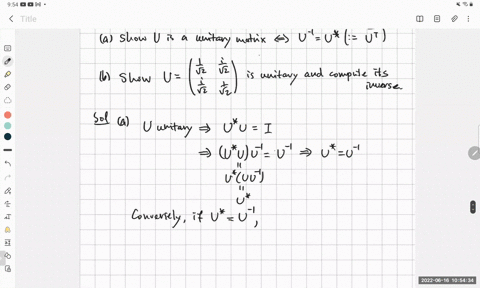 9:54
Title
(a) Show U is a unitary matrix ⇔ U⁻¹ = U* (:= Ūᵀ)
(b) Show U = ( 1/√2 i/√2
i/√2 1/√2 ) is unitary and compute its inverse
Sol (a) U unitary ⇒ U*U = I
⇒ (U*U)U⁻¹ = U⁻¹ ⇒ U* = U⁻¹
=
U*(UU⁻¹)
=
U*
Conversely, if U* = U⁻¹,
2022-06-16 10:54:34